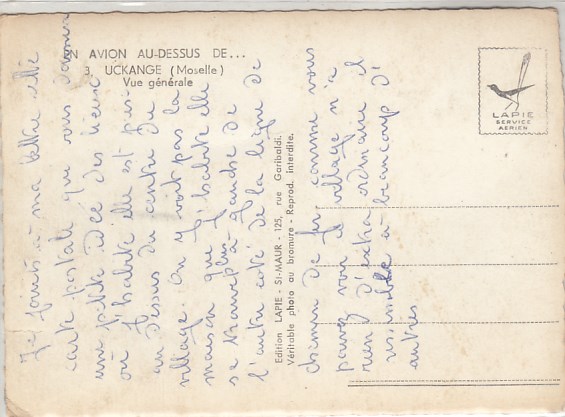 EN AVION AU-DESSUS DE...
3. UCKANGE (Moselle)
Vue générale
LAPIE
SERVICE
AERIEN
Edition LAPIE - St-MAUR - 125, rue Garibaldi.
Véritable photo au bromure - Reprod. interdite.
Je joins à ma lettre cette
carte postale que vous
une petite idée des lieux
où j'habite elle est
au dessus du centre du
village. On y voit pas la
maison que j'habite elle
se trouve plus à gauche de
l'autre coté de la ligne de
chemin de fer, comme vous
pouvez voir le village n'a
rien d'extra ordinaire il
à beaucoup d'
autres